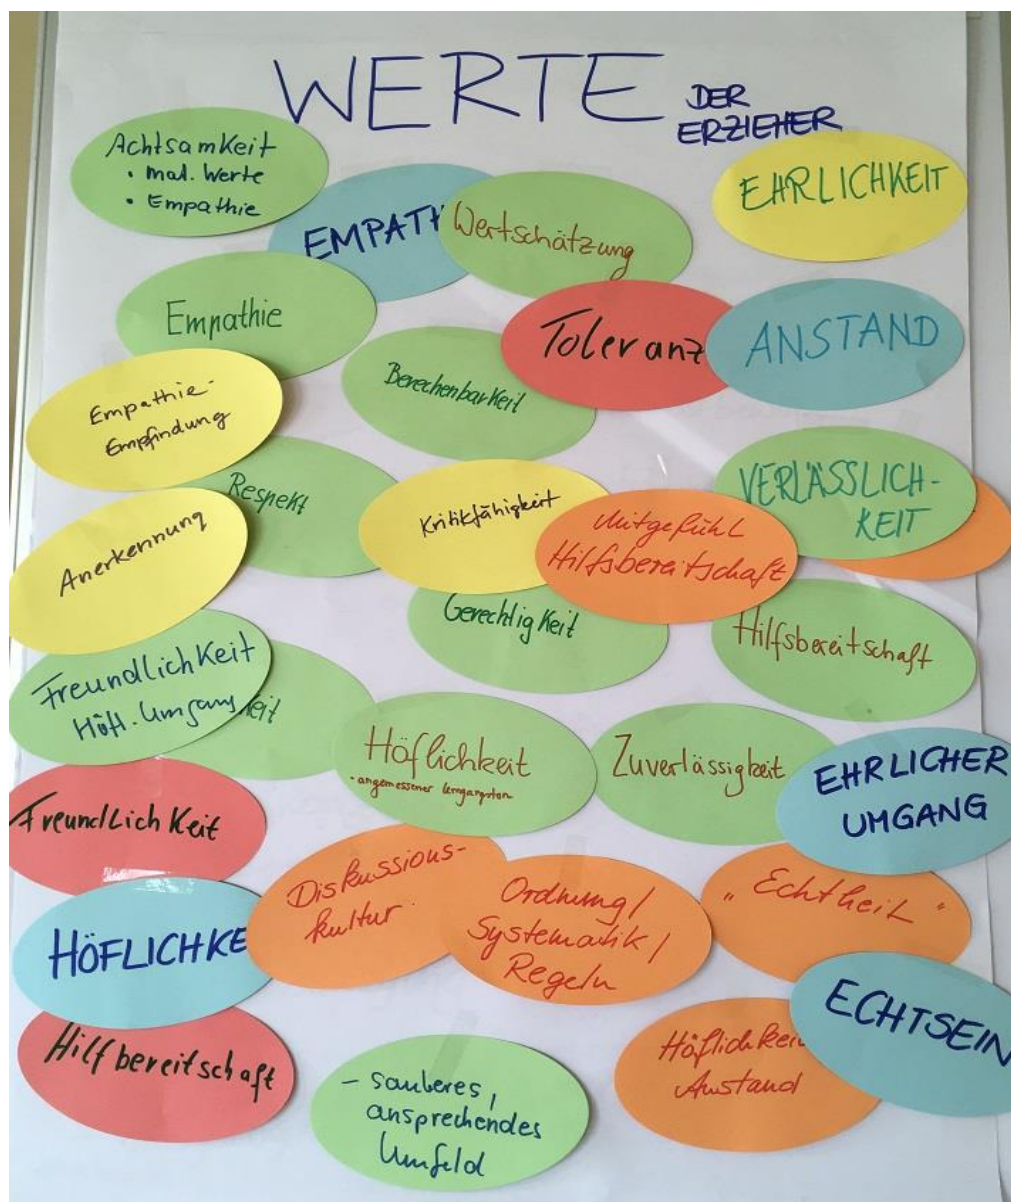 WERTE
DER
ERZIEHER
Achtsamkeit
• mat. Werte
• Empathie
EMPATH
Wertschätzung
EHRLICHKEIT
Empathie
Toleranz
ANSTAND
Berechenbarkeit
Empathie-
Empfindung
Respekt
Kritikfähigkeit
Mitgefühl
Hilfsbereitschaft
VERLÄSSLICH-
KEIT
Anerkennung
Gerechtigkeit
Hilfsbereitschaft
Freundlichkeit
Höfl. Umgang
keit
Höflichkeit
• angemessener Umgangston
Zuverlässigkeit
EHRLICHER
UMGANG
Freundlichkeit
Diskussions-
kultur
Ordnung/
Systematik/
Regeln
"Echtheit"
HÖFLICHKE
ECHTSEIN
Hilfbereitschaft
- sauberes,
ansprechendes
Umfeld
Höflichkeit
Anstand